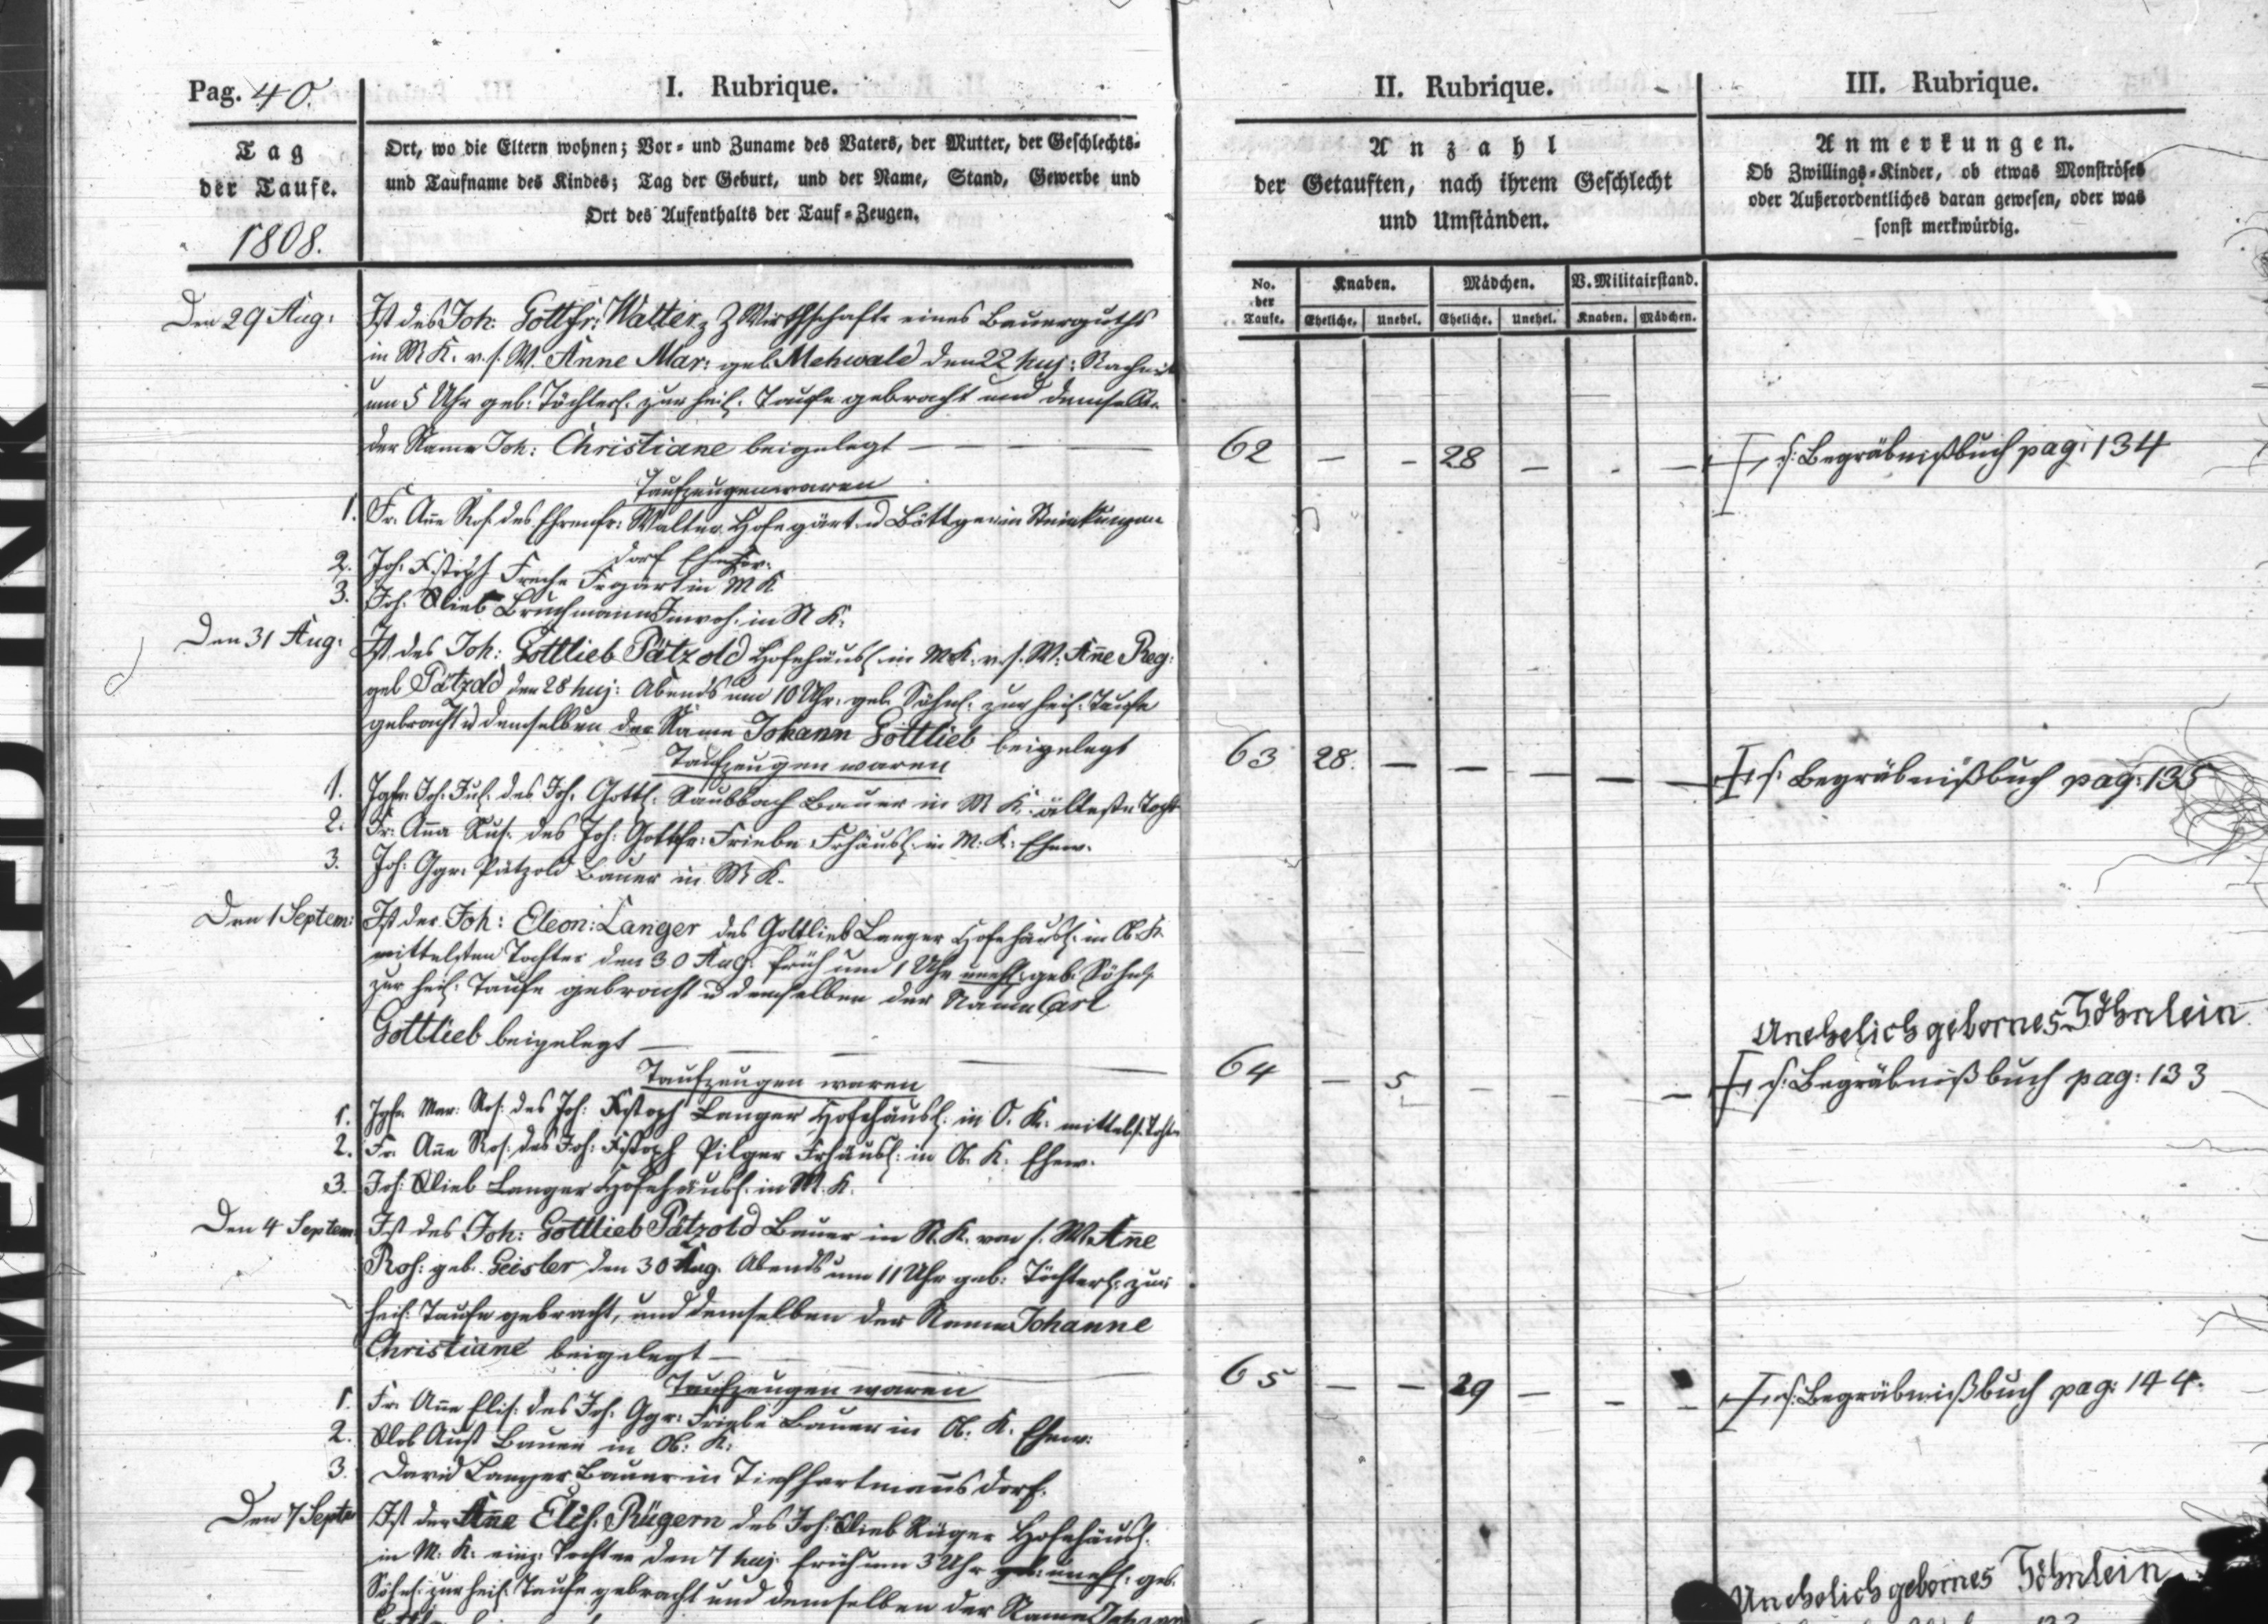 Pag. 40.
I. Rubrique.
II. Rubrique.
III. Rubrique.
Tag
der Taufe.
1808.
Ort, wo die Eltern wohnen; Vor- und Zuname des Vaters, der Mutter, der Geschlechts-
und Taufname des Kindes; Tag der Geburt, und der Name, Stand, Gewerbe und
Ort des Aufenthalts der Tauf-Zeugen.
Anzahl
der Getauften, nach ihrem Geschlecht
und Umständen.
Anmerkungen.
Ob Zwillings-Kinder, ob etwas Monströses
oder Außerordentliches daran gewesen, oder was
sonst merkwürdig.
No. der Taufe.
Knaben.
Mädchen.
V. Militairstand.
Eheliche. Unehel. Eheliche. Unehel. Knaben. Mädchen.
Den 29 Aug: Ist des Joh: Gottfr: Walter, Z Wirthschafts eines Bauerguths
in M K. v. s. W. Anne Mar: geb. Mehwald den 22 huj: Nachmit
um 5 Uhr geb: Töchterl. zur heil. Taufe gebracht und demselb.
der Name Joh: Christiane beigelegt — 62 — — 28 — — — s. Begräbnißbuch pag: 134
Taufzeugen waren
1. Fr. Ane Ros. des Ehrenfr: Walter Hofegärt. u Böttger in
dorf Ehew:
2. Joh. Xstoph Freche Frgärt in M K
3. Joh. Glieb Bruchmann Inwoh. in N K.
Den 31 Aug: Ist des Joh: Gottlieb Pätzold Hofehäusl. in M. K. v. s. W. Ane Reg:
geb Pätzold den 28 huj: Abends um 10 Uhr. geb. Söhnl. zur heil. Taufe
gebracht u demselben der Name Johann Gottlieb beigelegt 63 28. — — — — — s. Begräbnißbuch pag: 135
Taufzeugen waren
1. Jgfr. Joh. Jul. des Joh. Gottl. Raubbach Bauer in M K. älteste Tocht
2. Fr. Ana Ros. des Joh: Gottfr: Friebe Frhäusl. in M. K. Ehew.
3. Joh: Ggr. Pätzold Bauer in M K.
Den 1 Septem: Ist der Joh: Eleon: Langer des Gottlieb Langer Hofehäusl. in Ob. K
mittelsten Tochter den 30 Aug. früh um 1 Uhr unehl. geb. Söhnl.
zur heil. Taufe gebracht u demselben der Name Carl
Unehelich gebornes Söhnlein
Gottlieb beigelegt — 64 — 5 — — s. Begräbnißbuch pag: 133
Taufzeugen waren
1. Jgfr. Mar: Ros: des Joh: Xstoph Langer Hofehäusl. in O. K. mittelst. Tocht.
2. Fr. Ane Ros: des Joh: Xstoph Pilger Frhäusl. in Ob. K. Ehew.
3. Joh: Glieb Langer Hofehäusl. in M. K.
Den 4 Septem: Ist des Joh: Gottlieb Pätzold Bauer in N. K. von s. W. Ane
Ros: geb. Geisler den 30 Aug. Abends um 11 Uhr geb: Töchterl. zur
heil. Taufe gebracht, und demselben der Name Johanne
Christiane beigelegt — 65 — — 29 — — — s. Begräbnißbuch pag: 144.
Taufzeugen waren
1. Fr. Ane Elis: des Joh. Ggr: Friebe Bauer in Ob. K. Ehew:
2. Glob Aust Bauer in Ob: K:
3. David Langer Bauer in Tiefhartmansdorf.
Den 7 Septbr Ist der Ane Elis. Rügern des Joh. Glieb Rüger Hofehäusl.
in M. K. einz. Tochter den 7 huj. früh um 3 Uhr unehl. geb.
Söhnl. zur heil. Taufe gebracht und demselben der Name Johann
Unehelich gebornes Söhnlein